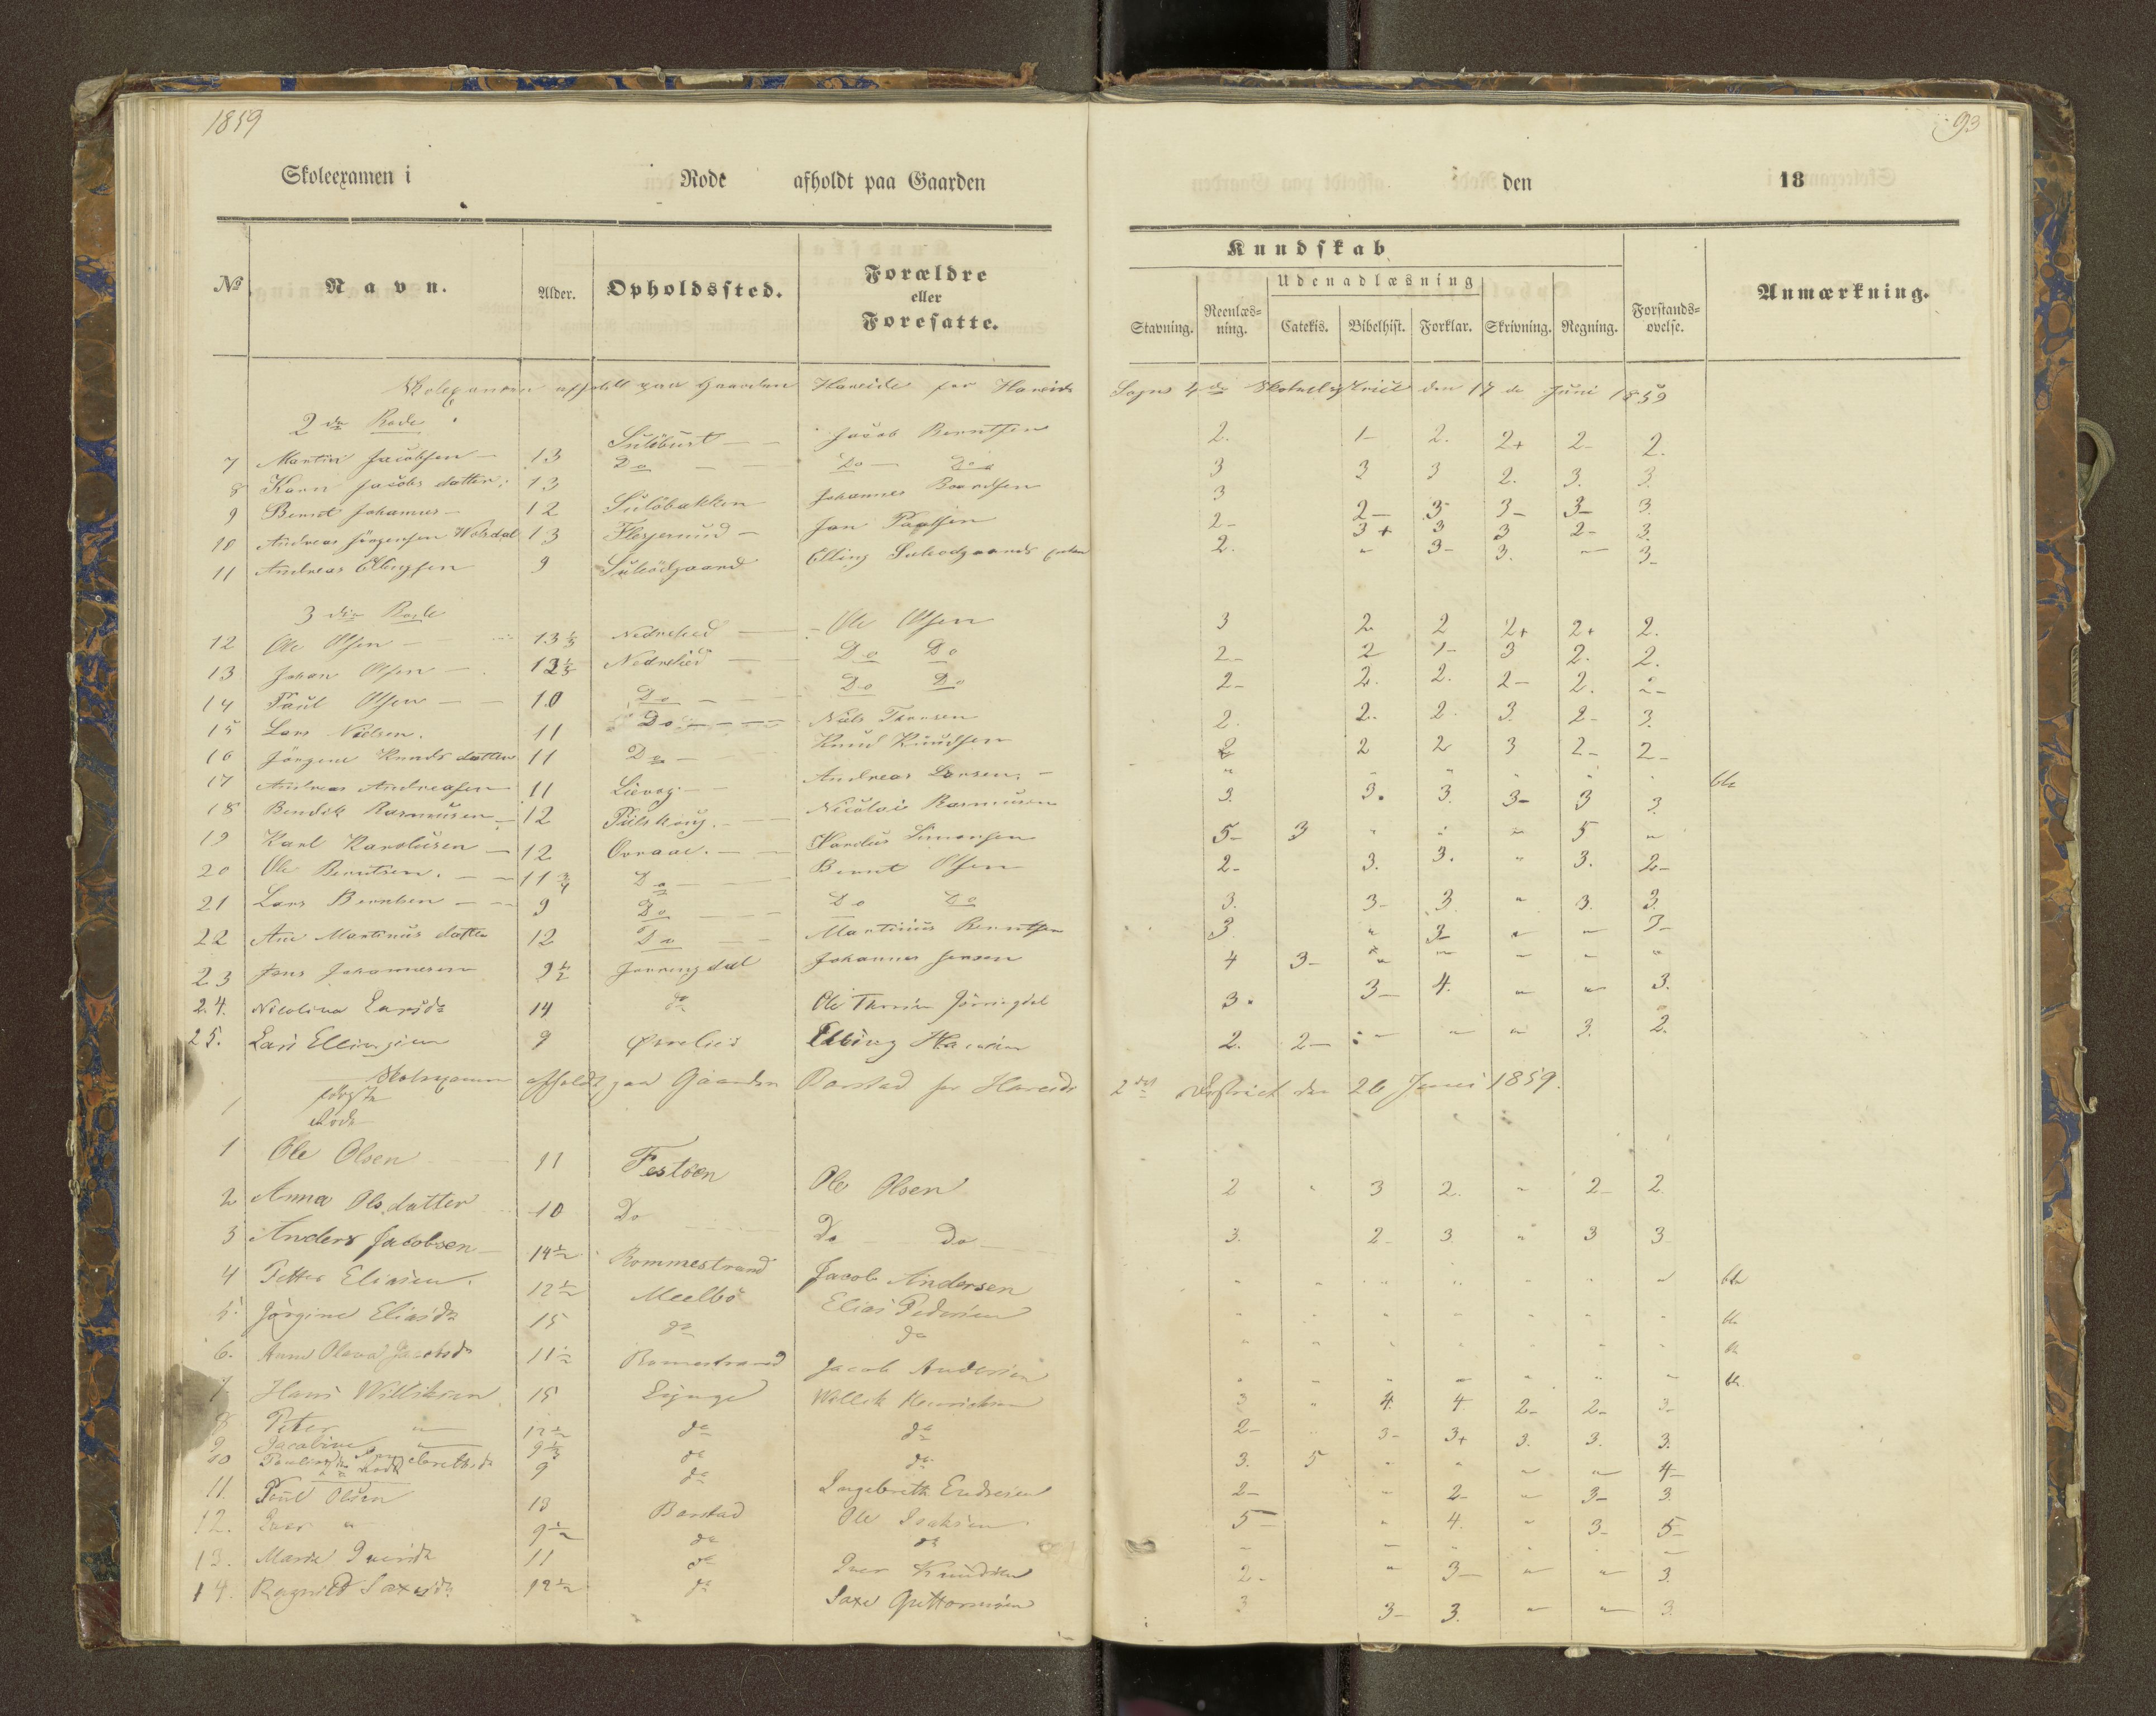 1859
93
Skoleexamen i Rode afholdt paa Gaarden den 18
Kundskab
Udenadlæsning
No Navn. Alder. Opholdssted. Forældre eller Foresatte. Stavning. Reenlæsning. Catekis. Bibelhist. Forklar. Skrivning. Regning. Forstandsøvelse. Anmærkning.
Skolexamen afholdt paa Gaarden Hareide for Hareids Sogns 4de Skoledistrict den 17 de Juni 1859
2den Rode
7 Martin Jacobsen 13 Jacob Berntsen 2. 1- 2. 2+ 2- 2.
8 Karn Jacobs datter 13 Do Do Do 3 3 3 2. 3. 3.
9 Bernt Johannes 12 Johannes 3 2- 3- 3- 3- 3.
10 Andreas Jörgensen 13 2- 3+ 3 3 2- 3.
11 Andreas Ellingsen 9 Elling 2. " 3- 3. " 3-
3die Rode
12 Ole Olsen 13½ Nedrelied Ole Olsen 3 2. 2 2+ 2+ 2.
13 Johan Olsen Nedrelied Do Do 2- 2 1- 3 2. 2.
14 Paul Olsen 10 Do Do Do 2- 2. 2. 2- 2. 2-
15 Lars Nielsen. 11 Do Niels 2. 2. 2. 3. 2- 3.
16 Jörgine Knuds datter 11 Do Knud Knudsen 2 2 2 3 2- 2-
17 Andreas Andreasen 11 Lievog Andreas Larsen " " " " "
18 Bendik Rasmusen 12 Nicolai Rasmusen 3. 3. 3. 3- 3 3.
19 Karl Karolusen 12 Ovraae. Karolus Simonsen 5- 3 " " " 5 "
20 Ole Berntsen. 11¾ Do Bernt Olsen 2- 3. 3. " 3. 2-
21 Lars Berntsen 9 Do Do Do 3. 3- 3 " 3. 3.
22 Ane Martinus datter 12 Do Martinus Berntsen 3. " 3- " " 3-
23 Jens Johannesen 9½ Johannes Jensen 4 3- " " " " "
24. Nicolina Larsdr 14 do Ole 3. 3- 4. " " 3.
25. Lars Ellingsen 9 Elling 2. 2- " " " 3. 2.
Skolexamen afholdt paa Gaarden Barstad for Hareids 2det District den 26 Juni 1859.
første Rode
1 Ole Olsen 11 Festöen Ole Olsen 2 " 3 2. " 2- 2
2 Anna Ols.datter 10 Do Do Do 3. 2- 3. " 3 3
3 Anders Jacobsen 14½ Rommestrand Jacob Andersen
4 Petter Eliasen. 12½ Meelbö Elias Pedersen
5. Jörgine Eliasdr 15 do do
6. Anne Olava Jacobsdr 11½ Romestrand Jacob Andersen
7 Hans Williksen 15 Willik Henriksen 3 " 4. 4. 2- 2- 3-
8 Peter " 12½ do do 2- 3- 3+ 3. 3. 3.
9 Jacobine " 9½ do do 3. 5 " " " " 4-
10 9 do Ingebreth Endresen 2- " 2- " 3- 3.
11. Paul Olsen 13 Barstad Ole Isaksen 5- " 4. " 3- 5-
12. Iver " 9½ do do
13. Marie Iversdr 11 do Iver Knudsen 2- " 3- " " 3.
14. Ragnild Saxesdr 12½ do Saxe Guttormsen 3 3- 3. " " 3.